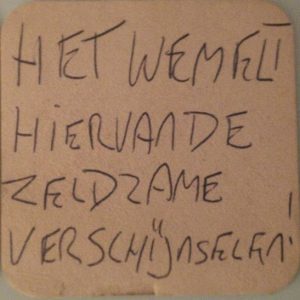 HET WEMELT
HIER VAN DE
ZELDZAME
VERSCHIJNSELEN!